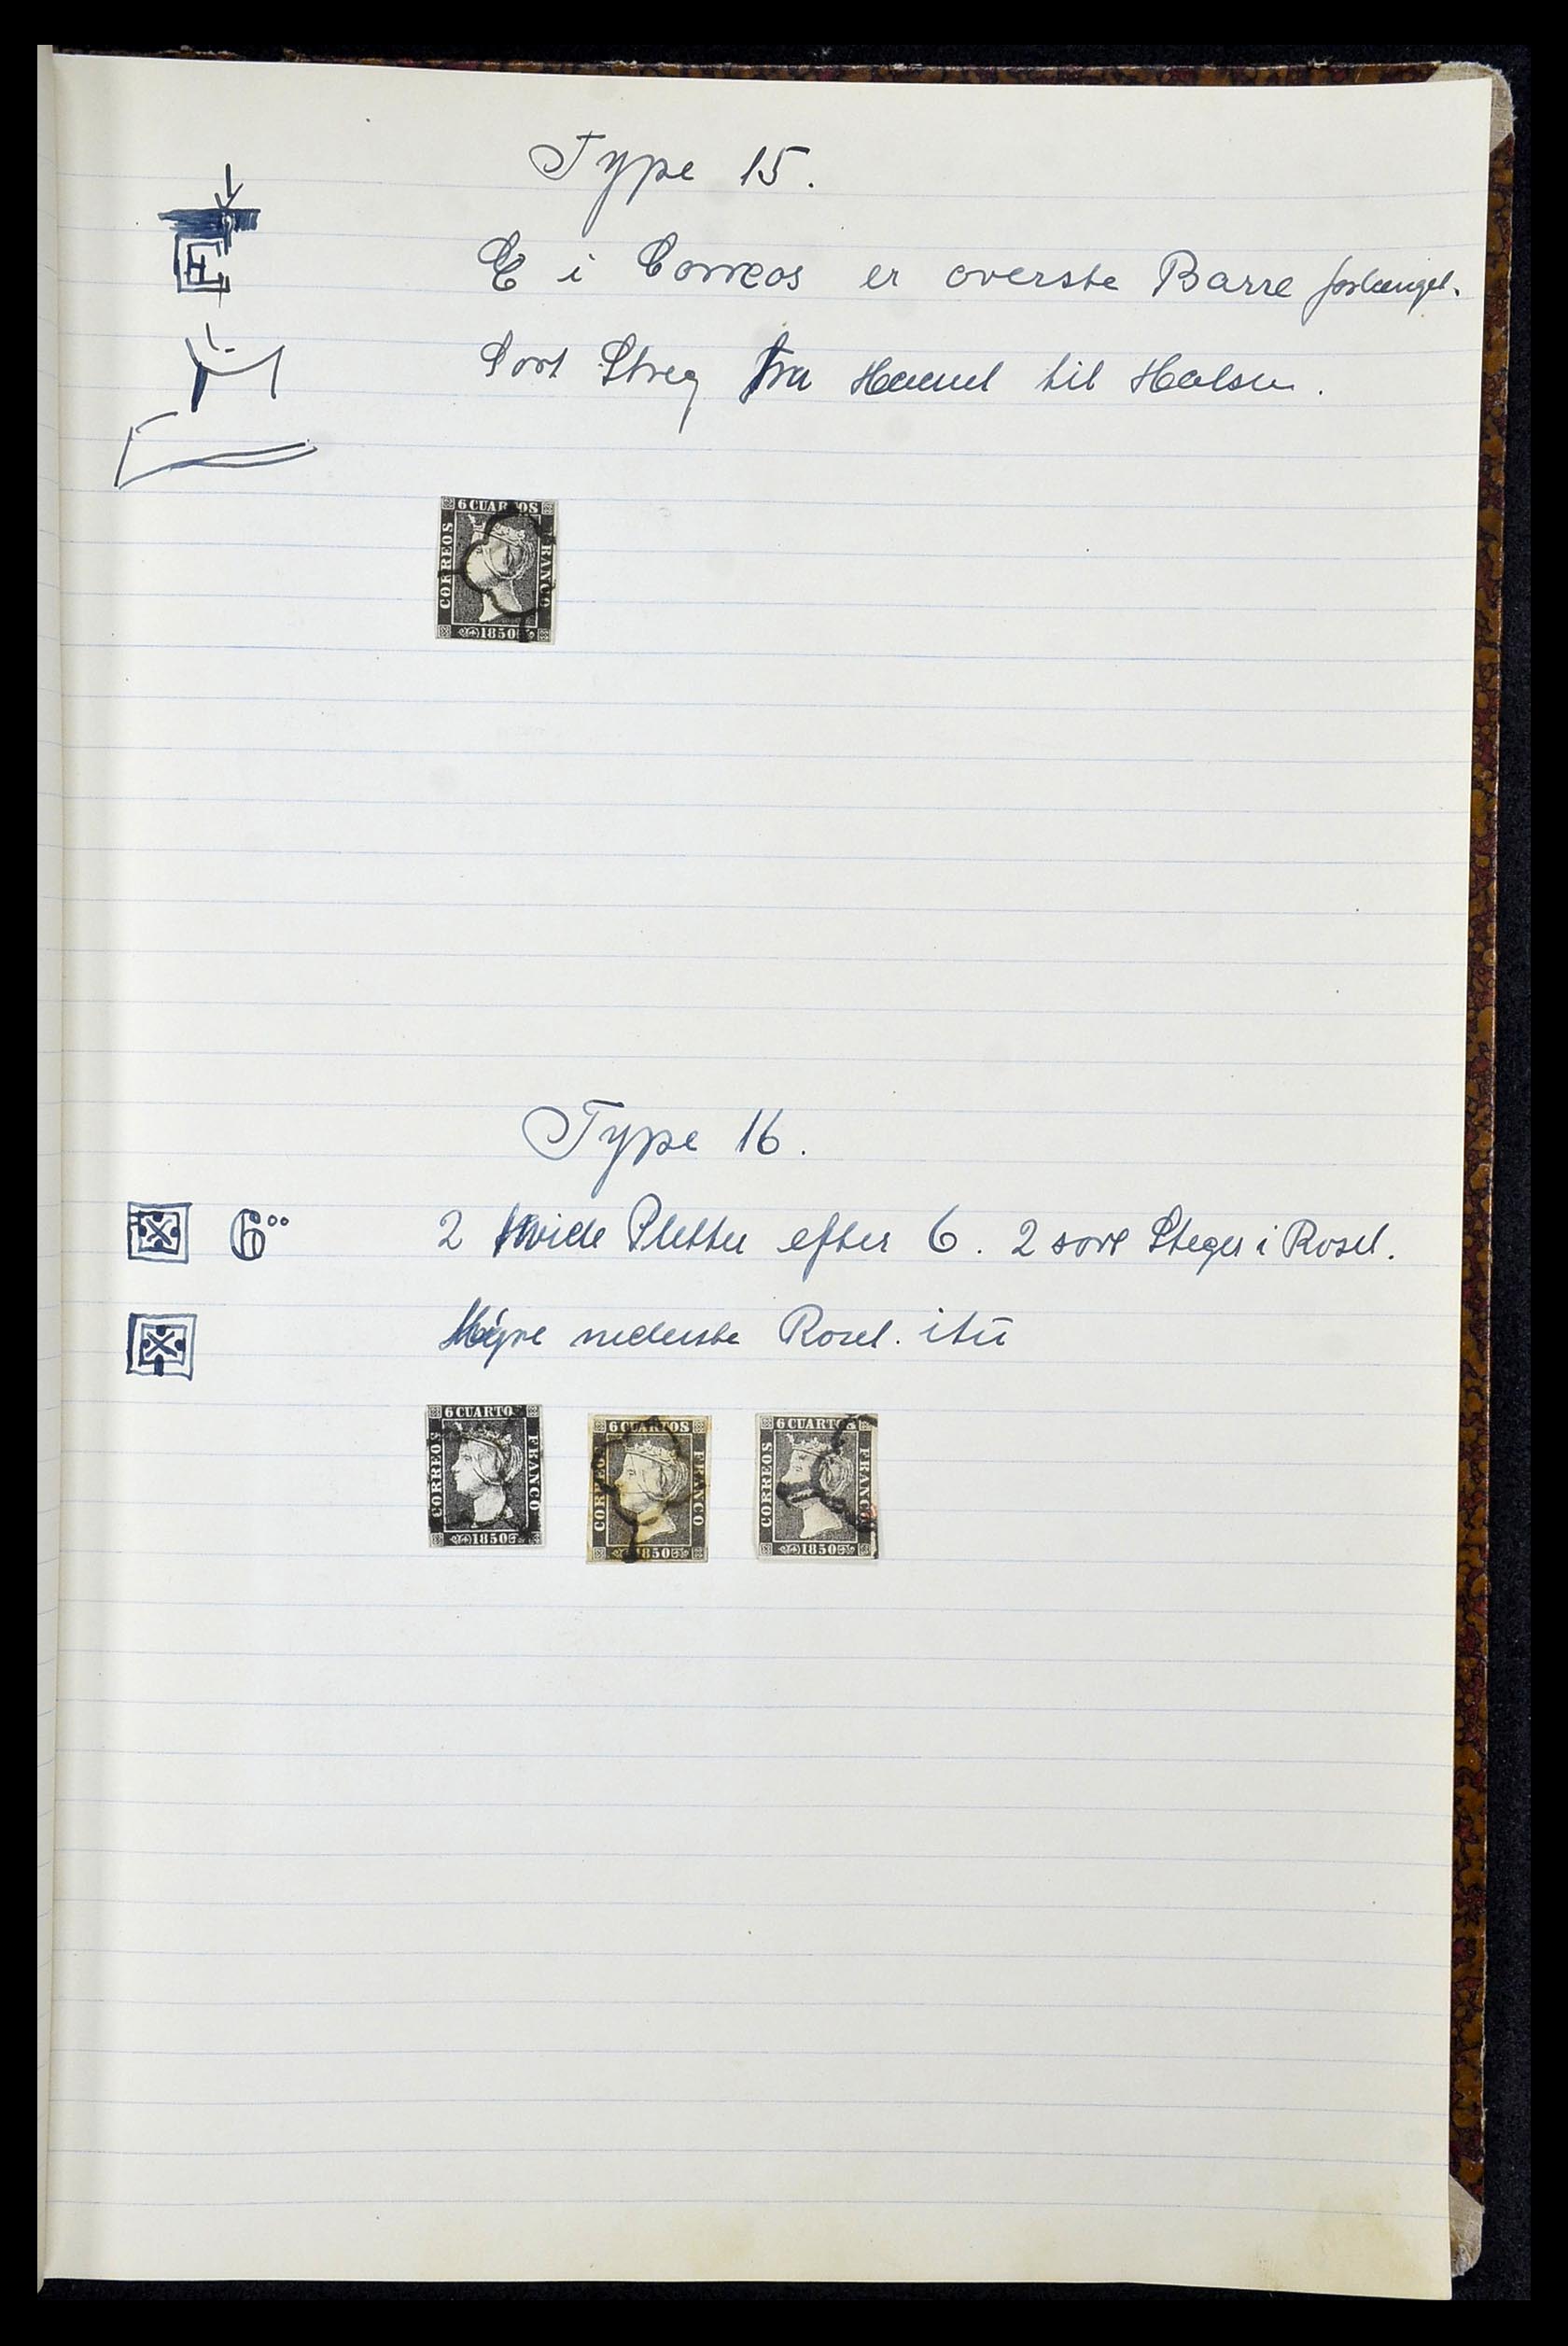 Type 15.
E
E i Correos er overste Barre forlænget.
Sort Streg fra til Halsen.
6 CUARTOS
CORREOS
FRANCO
1850
Type 16.
6°° 2 Hvide Pletter efter 6. 2 sort Steger i Roset.
Højre nederste Roset. itu
6 CUARTOS
CORREOS
FRANCO
1850
6 CUARTOS
CORREOS
FRANCO
1850
6 CUARTOS
CORREOS
FRANCO
1850